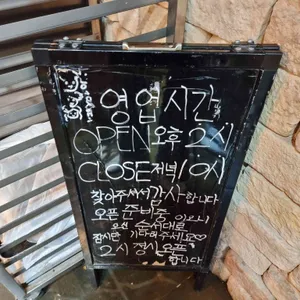 영업시간
OPEN 오후 2시
CLOSE 저녁 10시
찾아주셔서 감사합니다
오픈 준비중 이오니
오신 순서대로
잠시만 기다해주세요♡
2시 정시 오픈
합니다